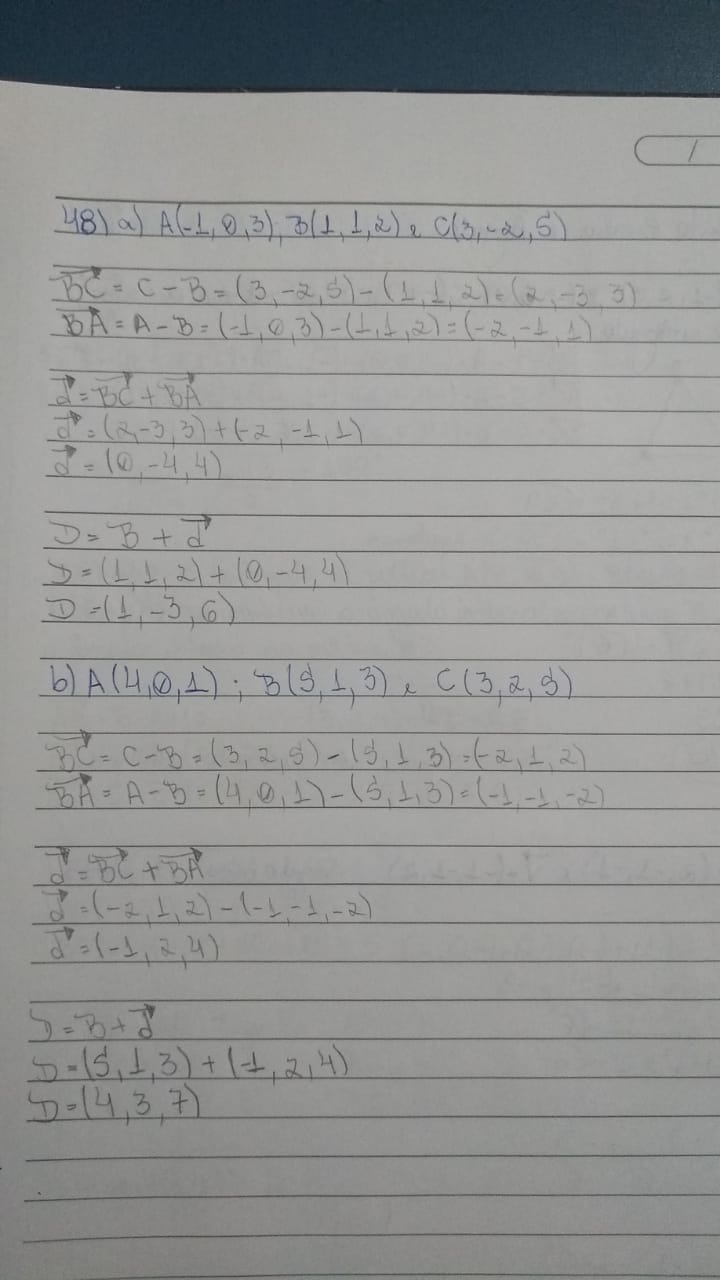 48) a) A(-1, 0, 3), B(1, 1, 2) e C(3, -2, 5)
BC⃗ = C - B = (3, -2, 5) - (1, 1, 2) = (2, -3, 3)
BA⃗ = A - B = (-1, 0, 3) - (1, 1, 2) = (-2, -1, 1)
d⃗ = BC⃗ + BA⃗
d⃗ = (2, -3, 3) + (-2, -1, 1)
d⃗ = (0, -4, 4)
D = B + d⃗
D = (1, 1, 2) + (0, -4, 4)
D = (1, -3, 6)
b) A(4, 0, 1) ; B(5, 1, 3) e C(3, 2, 5)
BC⃗ = C - B = (3, 2, 5) - (5, 1, 3) = (-2, 1, 2)
BA⃗ = A - B = (4, 0, 1) - (5, 1, 3) = (-1, -1, -2)
d⃗ = BC⃗ + BA⃗
d⃗ = (-2, 1, 2) - (-1, -1, -2)
d⃗ = (-1, 2, 4)
D = B + d⃗
D = (5, 1, 3) + (-1, 2, 4)
D = (4, 3, 7)